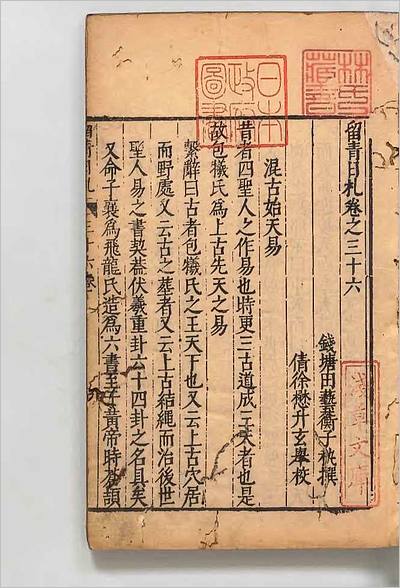 留青日札卷之三十六
錢塘田藝蘅子秇撰
倩徐懋升玄舉校
混古始天易
昔者四聖人之作易也時更三古道成三天者也是
故包犧氏爲上古先天之易
繫辭曰古者包犧氏之王天下也又云上古穴居
而野處又云古之葬者又云上古結繩而治後世
聖人易之書契葢伏羲重卦六十四卦之名具矣
又命子襄爲飛龍氏造爲六書至黃帝時蒼頡
林氏藏書
日本政府圖書
淺草文庫